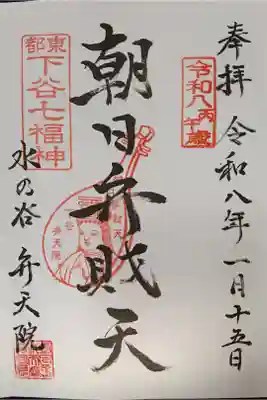 奉拝 令和八年一月十五日
令和八丙午歳
朝日弁財天
東都
下谷七福神
水の谷 弁天院